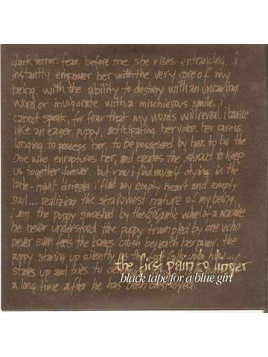 dark terror. fear. before me she rises entrancing. i
instantly empower her with the very core of my
being. with the ability to destroy with an uncaring
word or invigorate with a mischievous smile. i
cannot speak, for fear that my words will reveal. i bounce
like an eager puppy, anticipating her voice, her caress.
longing to possess her, to be possessed by her, to be the
one who enraptures her, and creates the shroud to keep
us together forever. but now i find myself driving in the
late-night drizzle i find my empty heart and empty
soul... realizing the shallowest nature of my being,
i am the puppy smashed by the gigantic wheel of a machine
he never understood. the puppy trampled by one who
never even feels the bones crush beneath her power. the
puppy staring up silently
stands up and tries to de
a long time after he has been destroyed.
the first pain to linger
black tape for a blue girl